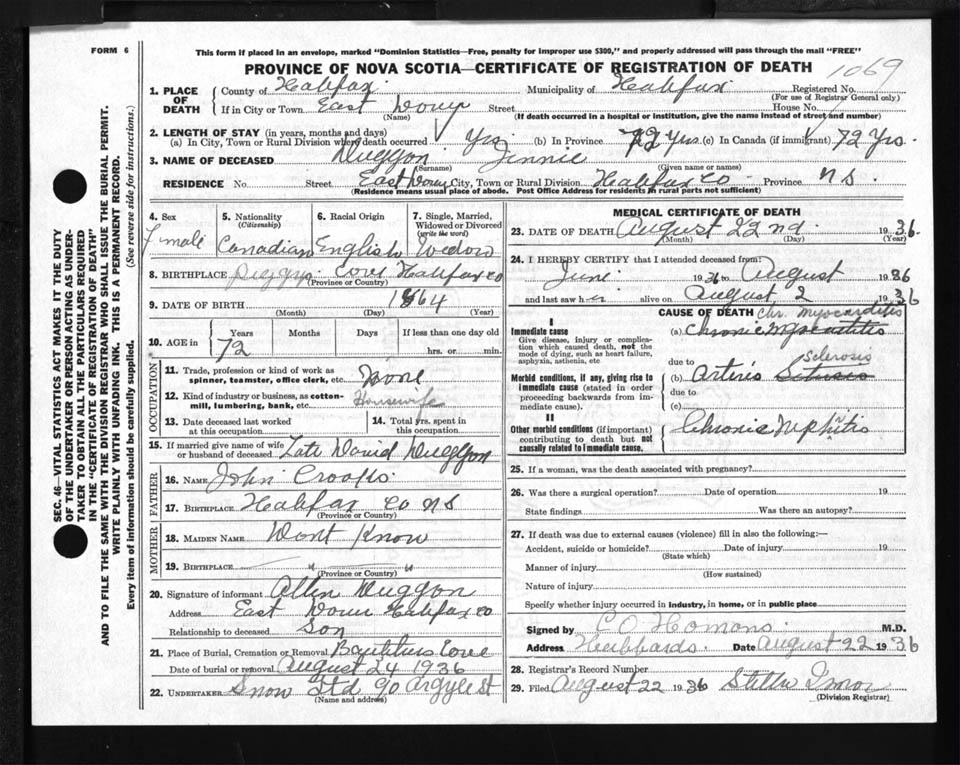 FORM 6
This form if placed in an envelope, marked "Dominion Statistics—Free, penalty for improper use $300," and properly addressed will pass through the mail "FREE"
PROVINCE OF NOVA SCOTIA—CERTIFICATE OF REGISTRATION OF DEATH
1069
1. PLACE OF DEATH
County of Halifax Municipality of Halifax Registered No.
(For use of Registrar General only)
If in City or Town East Dover Street House No.
(Name) (If death occurred in a hospital or institution, give the name instead of street and number)
2. LENGTH OF STAY (in years, months and days)
(a) In City, Town or Rural Division where death occurred Yrs (b) In Province 72 Yrs (c) In Canada (if immigrant) 72 Yrs.
3. NAME OF DECEASED Duggon Jinnie
(Surname) (Given name or names)
RESIDENCE No. Street East Dover City, Town or Rural Division Halifax Co Province N S.
(Residence means usual place of abode. Post Office Address for residents in rural parts not sufficient)
4. Sex
Female
5. Nationality
(Citizenship)
Canadian
6. Racial Origin
English
7. Single, Married, Widowed or Divorced
(write the word)
Wedow
8. BIRTHPLACE Peggys Cove Halifax Co
(Province or Country)
9. DATE OF BIRTH 1864
(Month) (Day) (Year)
10. AGE in
Years Months Days If less than one day old
72 hrs. or min.
OCCUPATION
11. Trade, profession or kind of work as spinner, teamster, office clerk, etc. None
12. Kind of industry or business, as cotton-mill, lumbering, bank, etc. Housewife
13. Date deceased last worked at this occupation
14. Total yrs. spent in this occupation
15. If married give name of wife or husband of deceased Late David Duggon
FATHER
16. NAME John Crooks
17. BIRTHPLACE Halifax Co N S
(Province or Country)
MOTHER
18. MAIDEN NAME Dont Know
19. BIRTHPLACE " "
(Province or Country)
20. Signature of informant Allen Duggon
Address East Dover Halifax Co
Relationship to deceased Son
21. Place of Burial, Cremation or Removal Cove
Date of burial or removal August 24 1936
22. UNDERTAKER Snow Ltd 90 Argyle st
(Name and address)
MEDICAL CERTIFICATE OF DEATH
23. DATE OF DEATH August 22nd. 1936.
(Month) (Day) (Year)
24. I HEREBY CERTIFY that I attended deceased from:
June 1936 to August 1936
and last saw her alive on August 2 1936
CAUSE OF DEATH Chr. Myocarditis
I
Immediate cause
Give disease, injury or complication which caused death, not the mode of dying, such as heart failure, asphyxia, asthenia, etc
(a) Chronic Myocatitis
due to Sclerosis
Morbid conditions, if any, giving rise to immediate cause (stated in order proceeding backwards from immediate cause).
(b) Arterio
due to
(c)
II
Other morbid conditions (if important) contributing to death but not causally related to immediate cause.
Chronic Nephitis
25. If a woman, was the death associated with pregnancy?
26. Was there a surgical operation? Date of operation 19
State findings Was there an autopsy?
27. If death was due to external causes (violence) fill in also the following:—
Accident, suicide or homicide? Date of injury 19
(State which)
Manner of injury
(How sustained)
Nature of injury
Specify whether injury occurred in industry, in home, or in public place
Signed by C O Homans. M.D.
Address Hubbards. Date August 22 1936
28. Registrar's Record Number
29. Filed August 22 1936 Stella
(Division Registrar)
SEC. 46—VITAL STATISTICS ACT MAKES IT THE DUTY
OF THE UNDERTAKER OR PERSON ACTING AS UNDER-
TAKER TO OBTAIN ALL THE PARTICULARS REQUIRED
IN THE "CERTIFICATE OF REGISTRATION OF DEATH"
AND TO FILE THE SAME WITH THE DIVISION REGISTRAR WHO SHALL ISSUE THE BURIAL PERMIT.
WRITE PLAINLY WITH UNFADING INK. THIS IS A PERMANENT RECORD.
Every item of information should be carefully supplied. (See reverse side for instructions.)